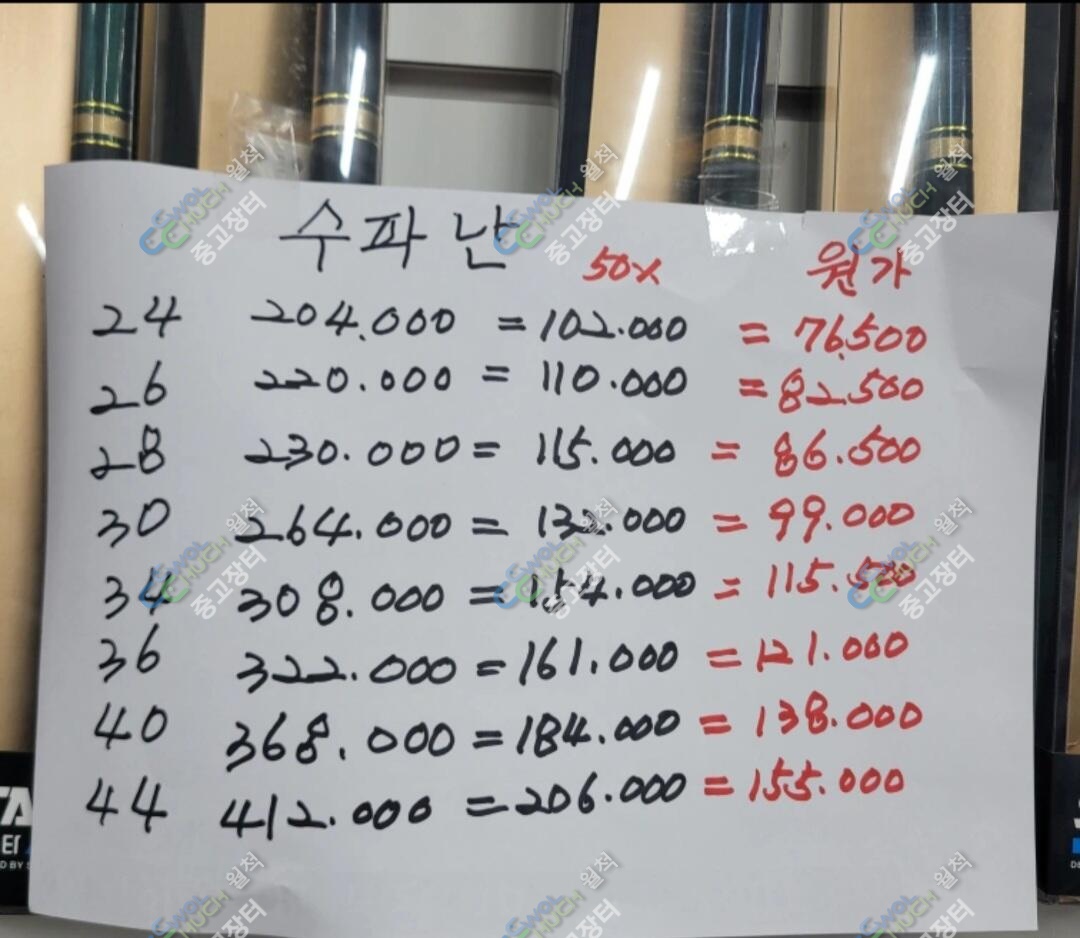 수파난
50% 원가
24 204.000 = 102.000 = 76.500
26 220.000 = 110.000 = 82.500
28 230.000 = 115.000 = 86.500
30 264.000 = 132.000 = 99.000
34 308.000 = 154.000 = 115.500
36 322.000 = 161.000 = 121.000
40 368.000 = 184.000 = 138.000
44 412.000 = 206.000 = 155.000
WOLCHUCK 월척 중고장터